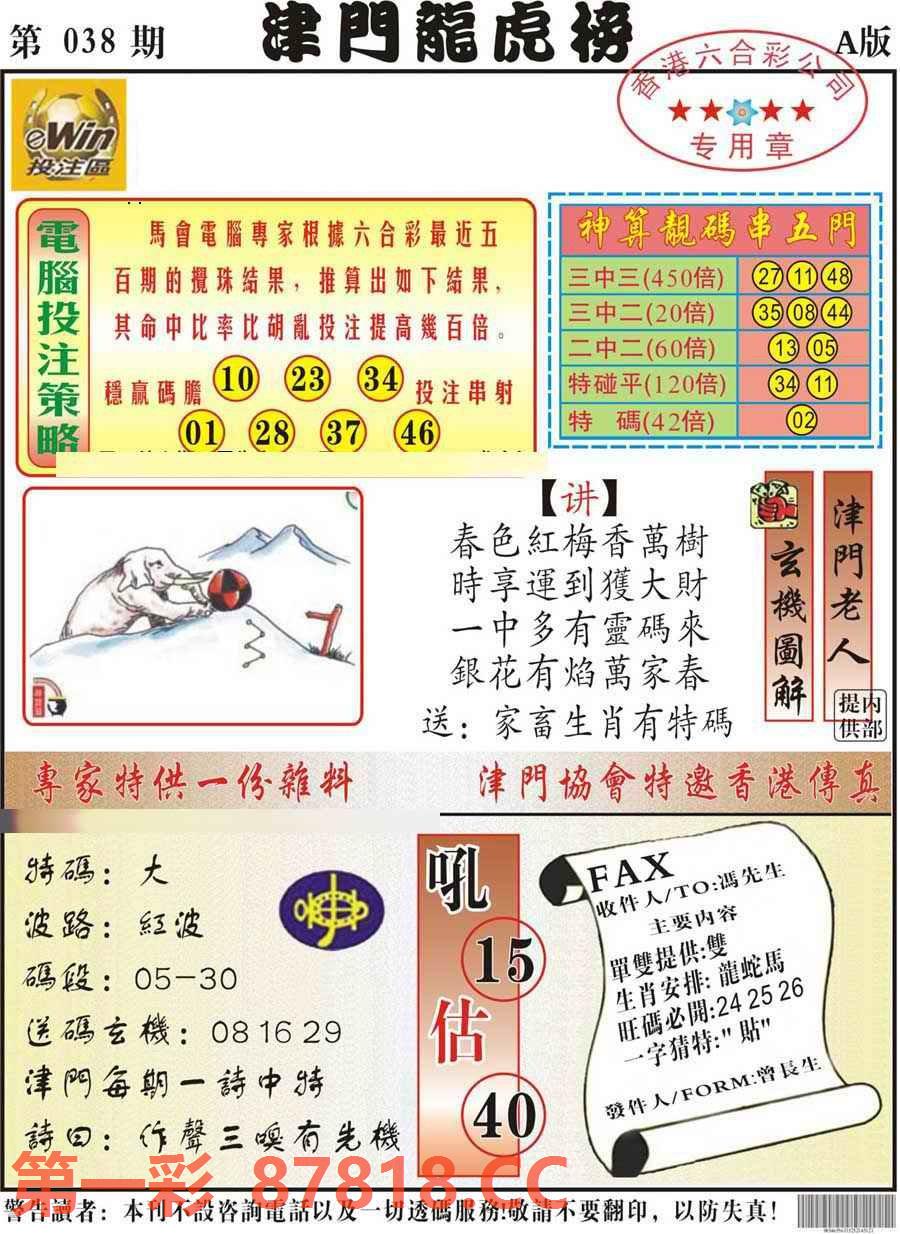 第 038 期
津門龍虎榜
A版
香港六合彩公司
专用章
eWin
投注區
電腦投注策略
馬會電腦專家根據六合彩最近五
百期的攪珠結果，推算出如下結果，
其命中比率比胡亂投注提高幾百倍。
穩贏碼膽 10 23 34 投注串射
01 28 37 46
神算靚碼串五門
三中三(450倍) 27 11 48
三中二(20倍) 35 08 44
二中二(60倍) 13 05
特碰平(120倍) 34 11
特 碼(42倍) 02
【讲】
春色紅梅香萬樹
時享運到獲大財
一中多有靈碼來
銀花有焰萬家春
送：家畜生肖有特碼
玄機圖解
津門老人
内部提供
專家特供一份雜料
津門協會特邀香港傳真
特碼：大
波路：紅波
碼段：05-30
送碼玄機：08 16 29
津門每期一詩中特
詩曰：作聲三喚有先機
吼
15
估
40
FAX
收件人/TO:馮先生
主要内容
單雙提供:雙
生肖安排:龍蛇馬
旺碼必開:24 25 26
一字猜特:"貼"
發件人/FORM:曾長生
第一彩 87818.CC
警告讀者：本刊不設咨詢電話以及一切透碼服務!敬請不要翻印，以防失真!